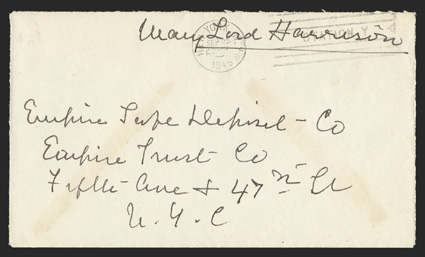 Mary Lord Harrison
1945
Empire Safe Deposit - Co
Empire Trust Co
Fifth Ave & 47th St
N. Y. C